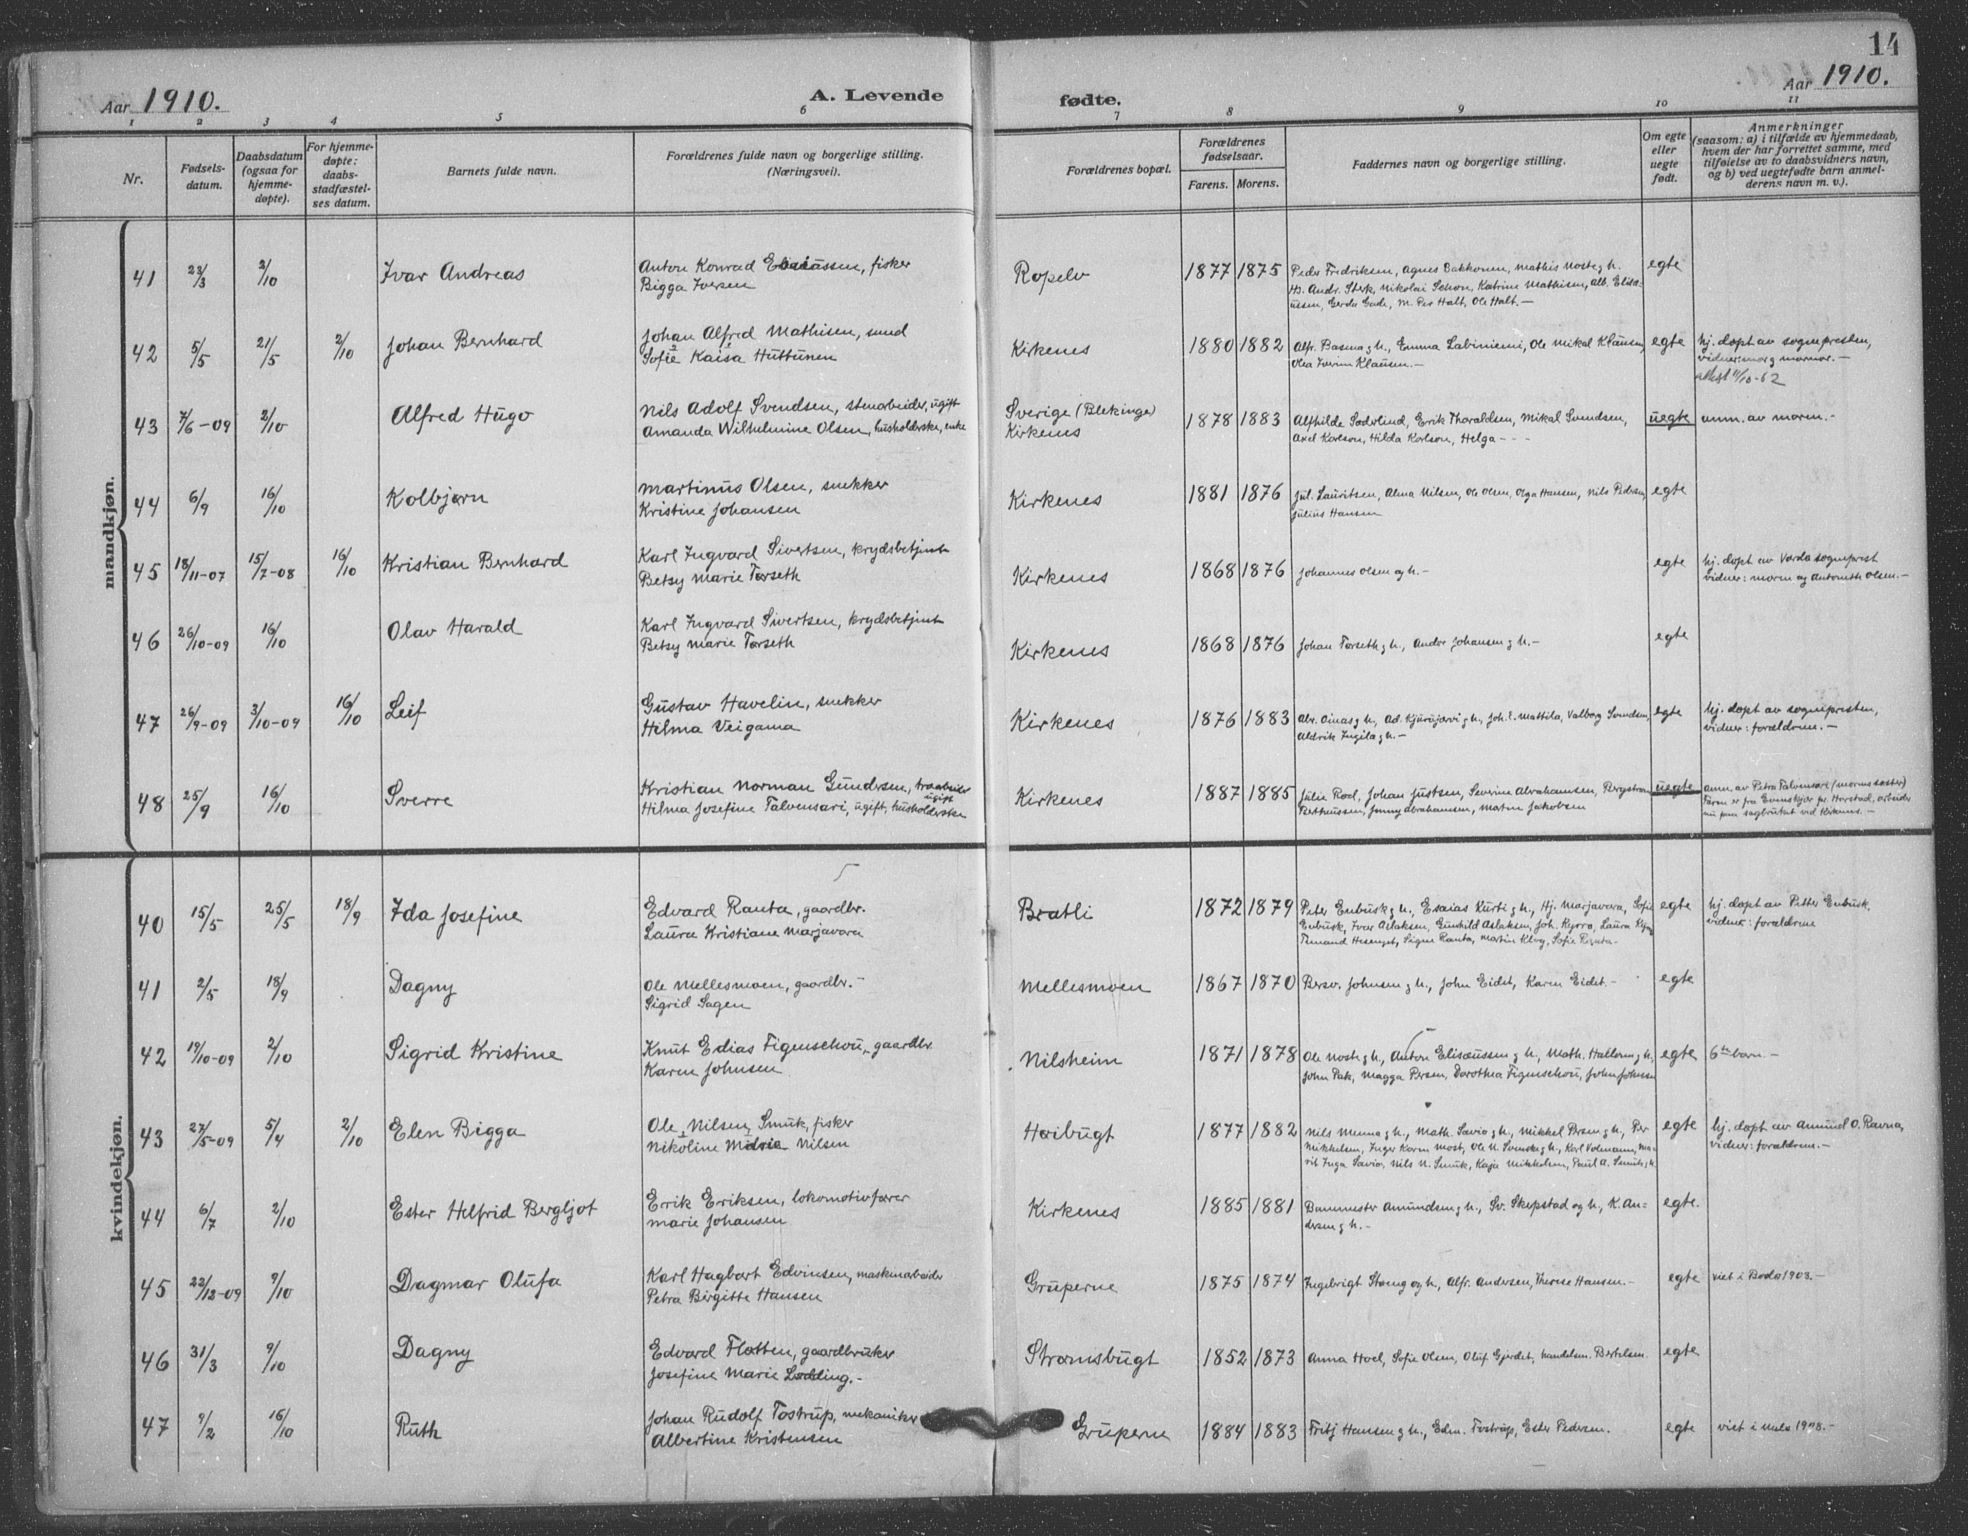 14
Aar 1910. A. Levende fødte. Aar 1910.
1 2 3 4 5 6 7 8 9 10 11
Nr. Fødsels-datum. Daabsdatum (ogsaa for hjemme-døpte). For hjemme-døpte: daabs-stadfæstel-ses datum. Barnets fulde navn. Forældrenes fulde navn og borgerlige stilling. (Næringsvei). Forældrenes bopæl. Forældrenes fødselsaar. Farens. Morens. Faddernes navn og borgerlige stilling. Om egte eller uegte født. Anmerkninger (saasom: a) i tilfælde av hjemmedaab, hvem der har forrettet samme, med tilføielse av to daabsvidners navn, og b) ved uegtefødte barn anmel-derens navn m. v.).
mandkjøn.
41 23/3 2/10 Ivar Andreas Anton Konrad fisker Ropelv 1877 1875 Peder Fredriksen, Agnes Bakkonen, Mathis Noste g h. egte
Bigga Iversen Hs. Andr. Sterk, Nikolai Schøn, Katrine Mathisen, Alb. Elisæ-
ussen, Gerda Gade, M. Per Halt, Ole Halt. —
42 5/5 21/5 2/10 Johan Bernhard Johan Alfred Mathisen, smed Kirkenes 1880 1882 Alfr. Basma g h., Emma Labiniemi, Ole Mikal Klausen, egte hj. døpt av sognepresten,
Sofie Kaisa Huttunen Olea Iverine Klausen. — vidner: mor og mormor. —
attest 11/10-62
43 7/6-09 2/10 Alfred Hugo Nils Adolf Svendsen, stenarbeider, ugift Sverige (Blekinge) 1878 1883 Alfhilde Søderlind, Erik Thoraldsen, Mikal Svendsen, uegte anm. av moren. -
Amanda Wilhelmine Olsen, husholderske, enke Kirkenes Axel Karlson, Hilda Karlson, Helga - - -
44 6/9 16/10 Kolbjørn Martinus Olsen, snekker Kirkenes 1881 1876 Jul. Lauritsen, Alma Nilsen, Ole Olsen, Olga Hansen, Nils Pedersen, egte
Kristine Johansen Julius Hansen
45 18/11-07 15/7-08 16/10 Kristian Bernhard Karl Ingvard Sivertsen, krydsbetjent Kirkenes 1868 1876 Johannes Olsen og h. - egte hj. døpt av Vardø sogneprest
Betsy Marie Tørseth vidner: moren og Antomette Olsen. —
46 26/10-09 16/10 Olav Harald Karl Ingvard Sivertsen, krydsbetjent Kirkenes 1868 1876 Johan Tørseth g h., Andor Johansen g h. - egte
Betsy Marie Tørseth
47 26/9-09 3/10-09 16/10 Leif Gustav Havelin, snekker Kirkenes 1876 1883 Abr. Oinas g h., Ad. Kjurujærvi g h., Joh. E. Mattila, Valborg Svendsen, egte hj. døpt av sognepresten,
Hilma Veigama Aldrik Ingila g h. - vidner: forældrene. -
48 25/9 16/10 Sverre Kristian Norman Gundersen, træarbeider ugift Kirkenes 1887 1885 Julie Roel, Johan Justsen, Severine Abrahamsen, Bergstrøm uegte anm. av Petra Talvensari (morens søster)
Hilma Josefine Talvensari, ugift, husholderske Bertheussen, Jenny Abrahamsen, Martin Jakobsen Faren er fra Evenskjer pr. Harstad, arbeider
nu paa sagbruket ved Kirkenes. —
kvindekjøn.
40 15/5 25/5 18/9 Ida Josefine Edvard Ranta, gaardbr. Bratli 1872 1879 Peter Enbusk g h., Esaias Kurti g h., Hj. Marjavara, Sofie egte hj. døpt av Petter Enbusk,
Laura Kristiane Marjavara Enbusk, Ivar Aslaksen, Gunhild Aslaksen, Joh. Kyrrø, Laura vidner: forældrene
Signe Ranta, Martin Sofie Ranta -
41 2/5 18/9 Dagny Ole Mellesmoen, gaardbr. - Mellesmoen 1867 1870 Bersv. Johnsen g h., John Eidet, Karen Eidet. - egte
Sigrid Sagen
42 19/10-09 2/10 Sigrid Kristine Knut Edias Figenschou, gaardbr. Nilsheim 1871 1878 Ole Noste g h., Anton Elisæussen g h., Math. Halloren g h., egte 6te barn. -
Karen Johnsen John Pak, Magga Persen, Dorothea Figenschou, John Johnsen
43 27/5-09 5/4 2/10 Elen Bigga Ole Nilsen Smuk, fisker Høibugt 1877 1882 Nils Menna g h., Math. Savio g h., Mikkel Persen g h., Per egte hj. døpt av Amund O. Ravna,
Nikoline Marie Nilsen Mikkelsen, Inger Karen Most, Ole N. Svenske g h., Karl Volmann, Ma- vidner: forældrene. -
rit Inga Savio, Nils N. Smuk, Kaja Mikkelsen, Paul A. Smuk g h.
44 6/7 2/10 Ester Helfrid Bergljot Erik Eriksen, lokomotivfører Kirkenes 1885 1881 Banemester Amundsen g h., Sv. Skipstad og h., K. An- egte.
Marie Johansen dersen g h. -
45 22/12-09 9/10 Dagmar Olufa Karl Hagbart Edvinsen, maskinarbeider Gruperne 1875 1874 Ingebrigt Støng og h., Alfr. Andersen, Therese Hansen. - egte viet i Bodø 1903. -
Petra Birgitte Hansen
46 31/3 9/10 Dagny Edvard Flotten, gaardbruker Strømsbugt 1852 1873 Anna Hoel, Sofie Olsen, Oluf Gjerdet, handelsm. Bertelsen egte
Josefine Marie Lødding. -
47 9/2 16/10 Ruth Johan Rudolf Tostrup, mekaniker Gruperne 1884 1883 Fritj Hansen g h., Edm. Tostrup, Ester Pedersen. egte viet i
Albertine Kristensen